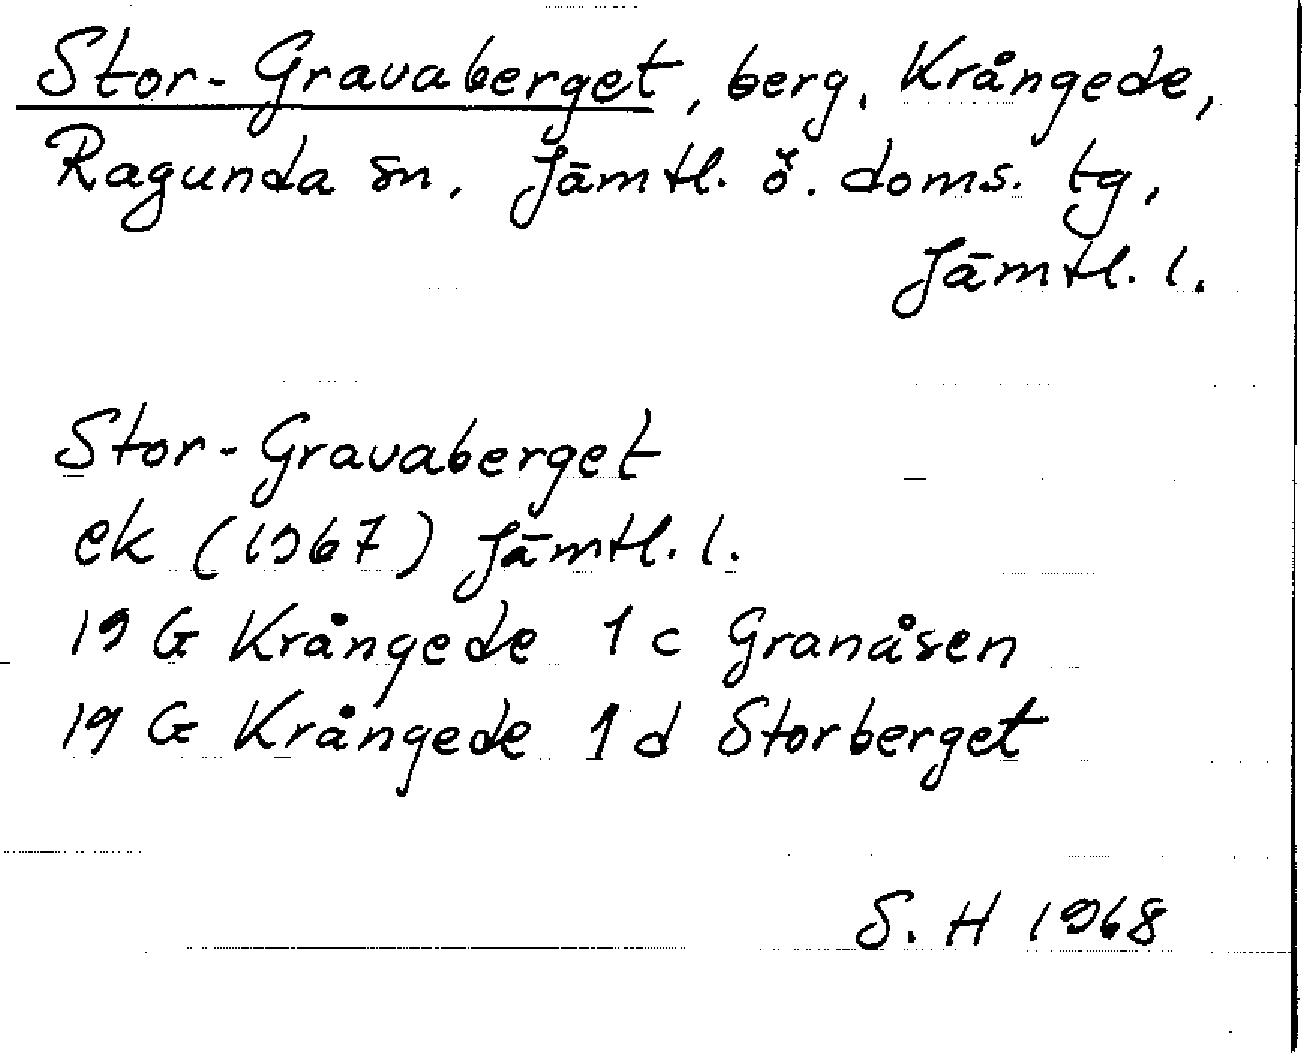 Stor-Gravaberget, berg, Krångede,
Ragunda sn, Jämtl. ö. doms. tg,
Jämtl. l.
Stor-Gravaberget
ek (1967) Jämtl. l.
19 G Krångede 1 c Granåsen
19 G Krångede 1 d Storberget
S. H 1968